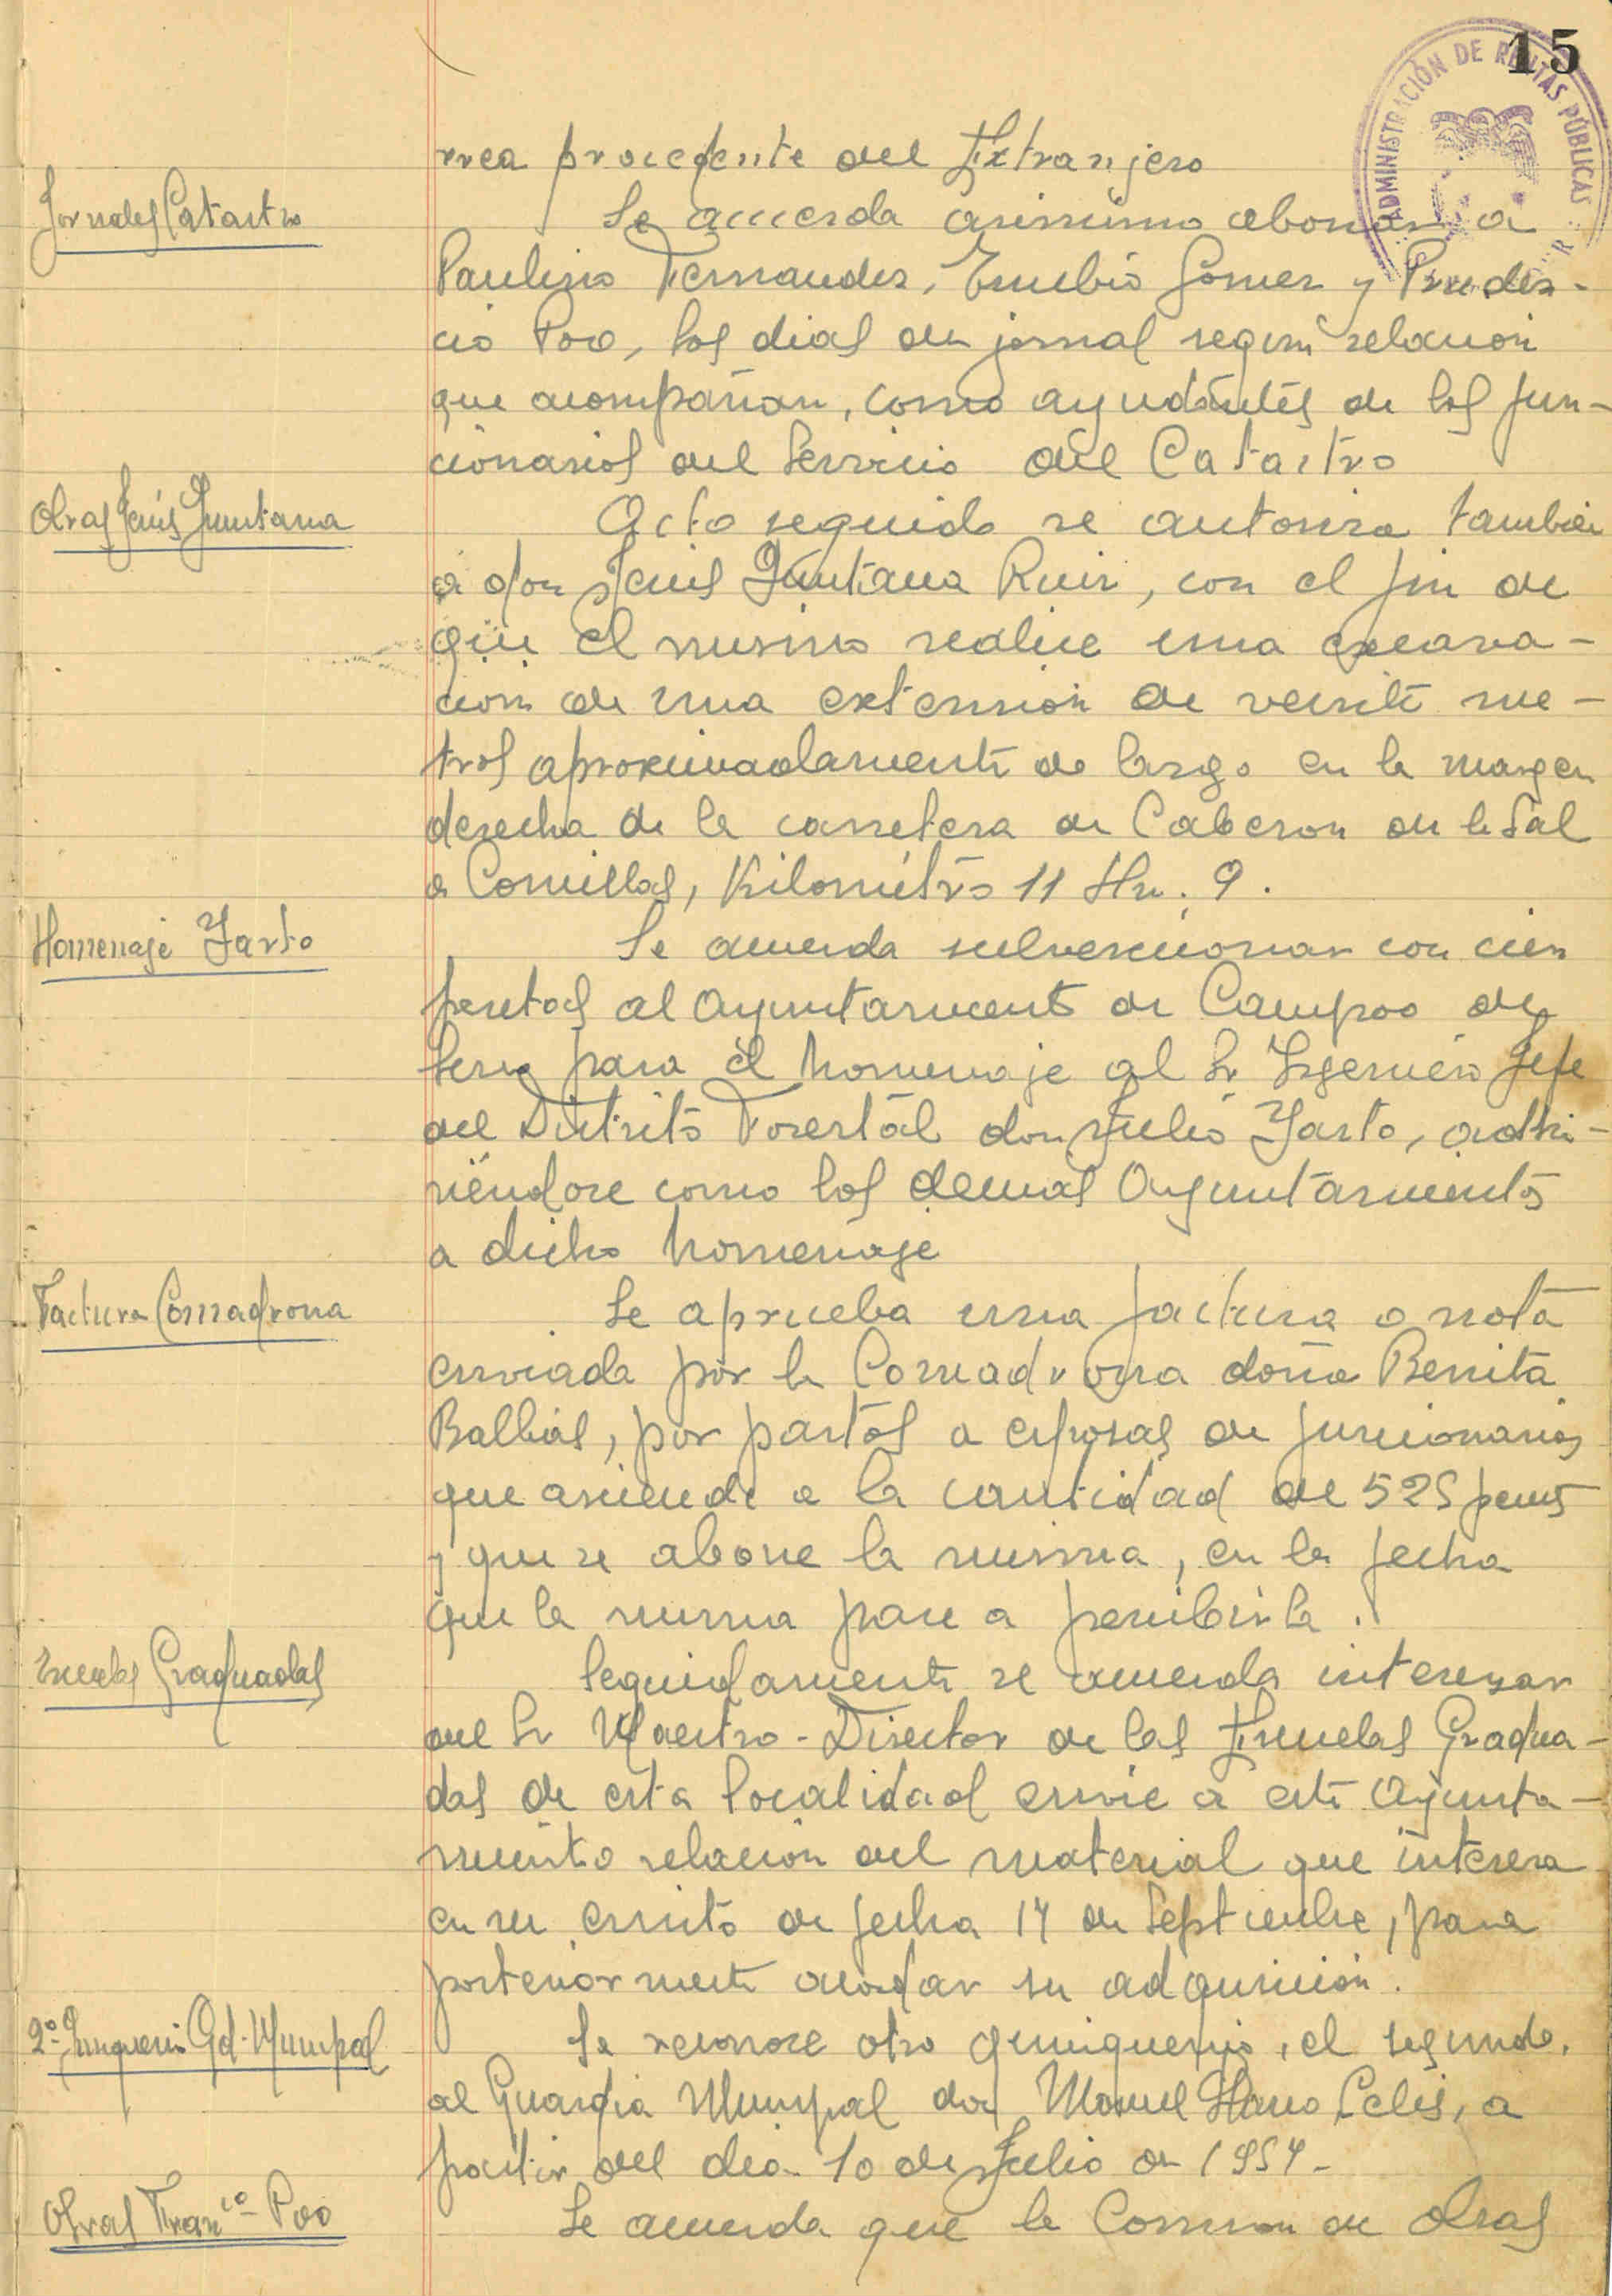 15
ADMINISTRACIÓN DE RENTAS PÚBLICAS
rrea procedente del Extranjero
Jornales Catastro
Se acuerda asimismo abonar a
Paulino Fernandez, Eusebio Gomez y Pruden-
cio Poo, los dias de jornal según relacion
que acompañan, como ayudantes de los fun-
cionarios del Servicio del Catastro
Obras Jesús Quintana
Acto seguido se autoriza tambien
a don Jesus Quintana Ruiz, con el fin de
que el mismo realice una excava-
cion de una extension de veinte me-
tros aproximadamente de largo en la margen
derecha de la carretera de Cabezon de la Sal
a Comillas, Kilometro 11 Hm. 9.
Homenaje Yarto
Se acuerda subvencionar con cien
pesetas al Ayuntamiento de Campoo de
Suso para el homenaje al Sr Ingeniero Jefe
del Distrito Forestal don Julio Yarto, adhi-
riéndose como los demas Ayuntamientos
a dicho homenaje
Factura Comadrona
Se aprueba una factura o nota
enviada por la Comadrona doña Benita
Balbás, por partos a esposas de funcionarios
que asciende a la cantidad de 525 pesetas
y que se abone la misma, en la fecha
que la misma pase a percibirla.
Escuelas Graduadas
Seguidamente se acuerda interesar
del Sr Maestro-Director de las Escuelas Gradua-
das de esta localidad envie a este Ayunta-
miento relacion del material que interesa
en su escrito de fecha 14 de Septiembre, para
posteriormente acordar su adquisicion.
2º Quinquenio Gd. Municpal
Se reconoce otro quinquenio, el segundo,
al Guardia Municpal don Manuel Haro Celis, a
partir del dia 10 de Julio de 1954-
Obras Francº Poo
Se acuerda que la Comision de Obras